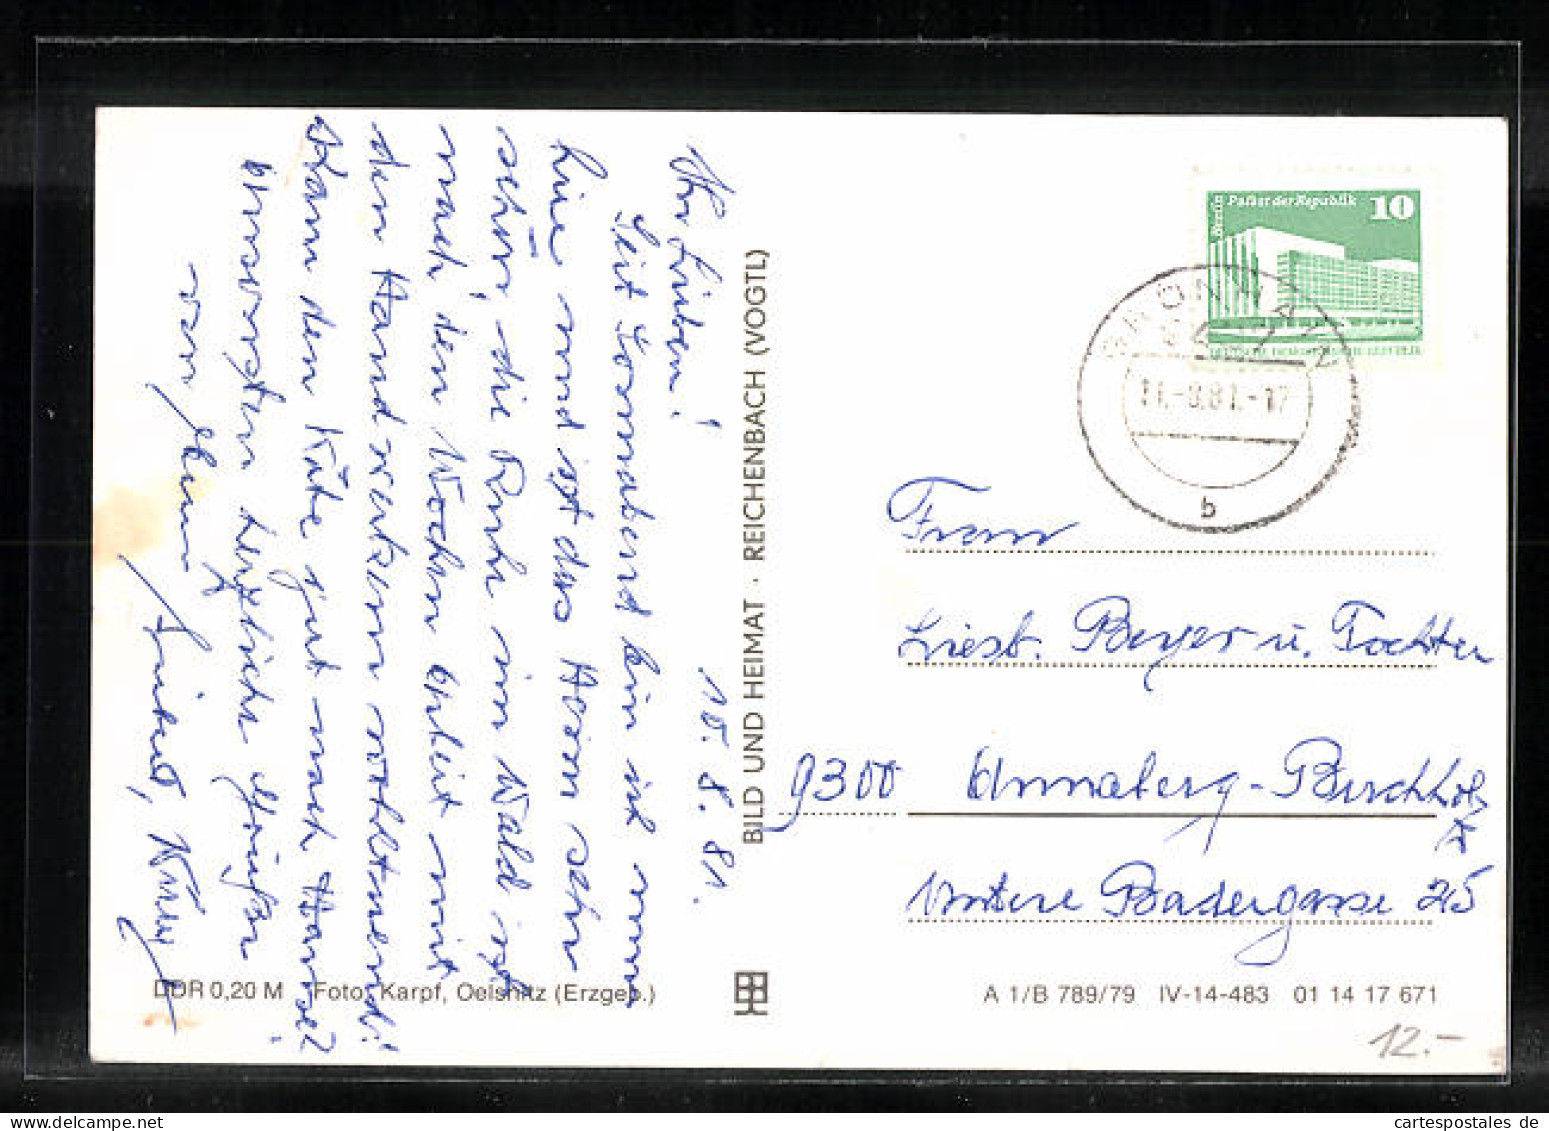 10. 8. 81.
Ihr Lieben!
Seit Sonnabend bin ich nun
hier und ist das Heim sehr
schön, die Ruhe im Wald ist
nach den Wochen Arbeit mit
den Handwerkern wohltuend!
Kam denn Käte gut nach Hause?
herzliche Grüße
von
BILD UND HEIMAT · REICHENBACH (VOGTL)
DDR 0,20 M Foto: Karpf, Oelsnitz (Erzgeb.)
Berlin Palast der Republik 10
DEUTSCHE DEMOKRATISCHE REPUBLIK
GRÜNHAIN
11.-8.81.-17
b
Frau
Liesb. Beyer u. Tochter
9300 Annaberg-Buchholz
Untere Badergasse 25
A 1/B 789/79 IV-14-483 01 14 17 671
12.-
cartespostales de